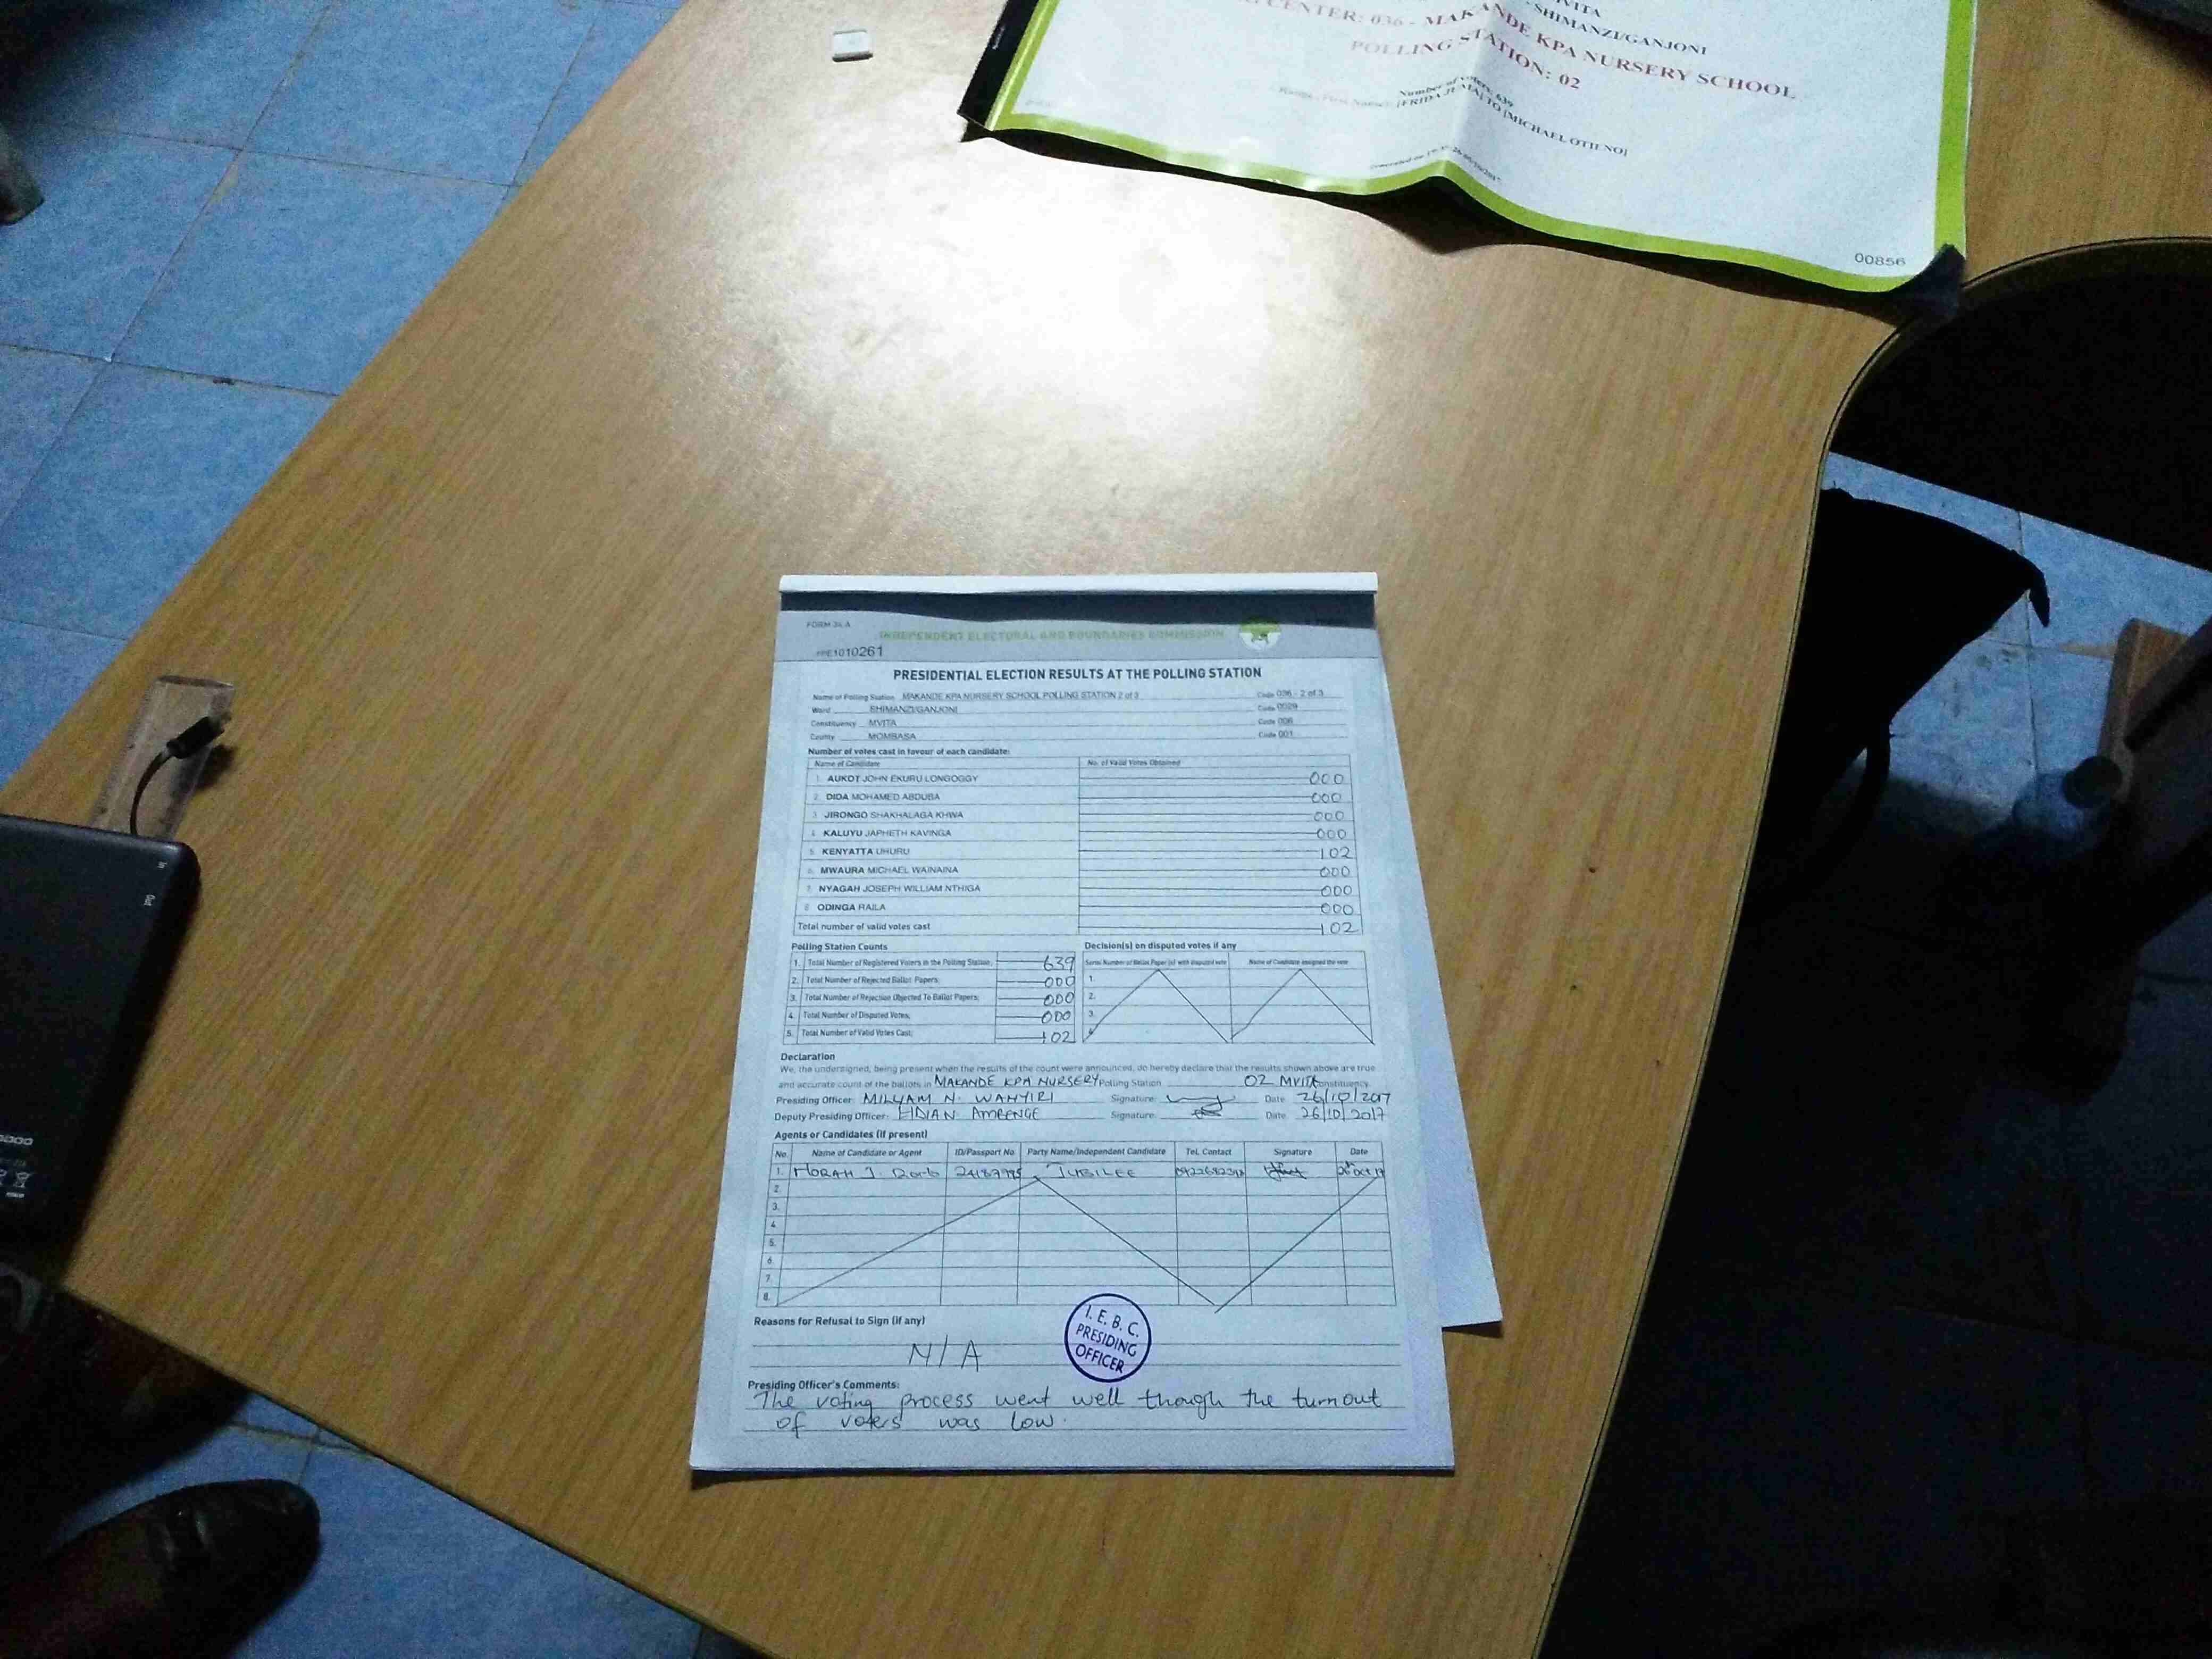 VITA
- SHIMANZI/GANJONI
CENTER: 036 - MAKANDE KPA NURSERY SCHOOL
POLLING STATION: 02
Number of voters: 639
[FRIDA JUMA] TO [MICHAEL OTIENO]
00856
In
Out
FORM 34A
INDEPENDENT ELECTORAL AND BOUNDARIES COMMISSION
1010261
PRESIDENTIAL ELECTION RESULTS AT THE POLLING STATION
Name of Polling Station MAKANDE KPA NURSERY SCHOOL POLLING STATION 2 of 3 Code 036 - 2 of 3
Ward SHIMANZI/GANJONI Code 0029
Constituency MVITA Code 006
County MOMBASA Code 001
Number of votes cast in favour of each candidate:
Name of Candidate No. of Valid Votes Obtained
1. AUKOT JOHN EKURU LONGOGGY 000
2. DIDA MOHAMED ABDUBA 000
3. JIRONGO SHAKHALAGA KHWA 000
4. KALUYU JAPHETH KAVINGA 000
5. KENYATTA UHURU 102
6. MWAURA MICHAEL WAINAINA 000
7. NYAGAH JOSEPH WILLIAM NTHIGA 000
8. ODINGA RAILA 000
Total number of valid votes cast 102
Polling Station Counts Decision(s) on disputed votes if any
1. Total Number of Registered Voters in the Polling Station; 639
2. Total Number of Rejected Ballot Papers; 000
3. Total Number of Rejection Objected To Ballot Papers; 000
4. Total Number of Disputed Votes; 000
5. Total Number of Valid Votes Cast; 102
Serial Number of Ballot Paper (s) with disputed vote Name of Candidate assigned the vote
1.
2.
3.
4.
Declaration
We, the undersigned, being present when the results of the count were announced, do hereby declare that the results shown above are true
and accurate count of the ballots in MAKANDE KPA NURSERY Polling Station 02 MVITA Constituency.
Presiding Officer: MILYAM N. WANYIRI Signature: Date 26/10/2017
Deputy Presiding Officer: Signature: Date 26/10/2017
Agents or Candidates (if present)
No. Name of Candidate or Agent ID/Passport No Party Name/Independent Candidate Tel. Contact Signature Date
1. JUBILEE
2.
3.
4.
5.
6.
7.
8.
Reasons for Refusal to Sign (if any)
N/A
I. E. B. C.
PRESIDING
OFFICER
Presiding Officer's Comments:
The voting process went well though the turnout
of voters was low.